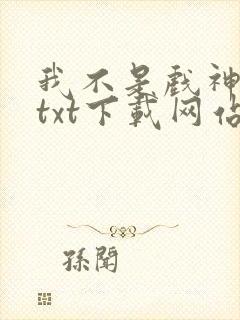 我不是戲神
txt下載网站
孫聞